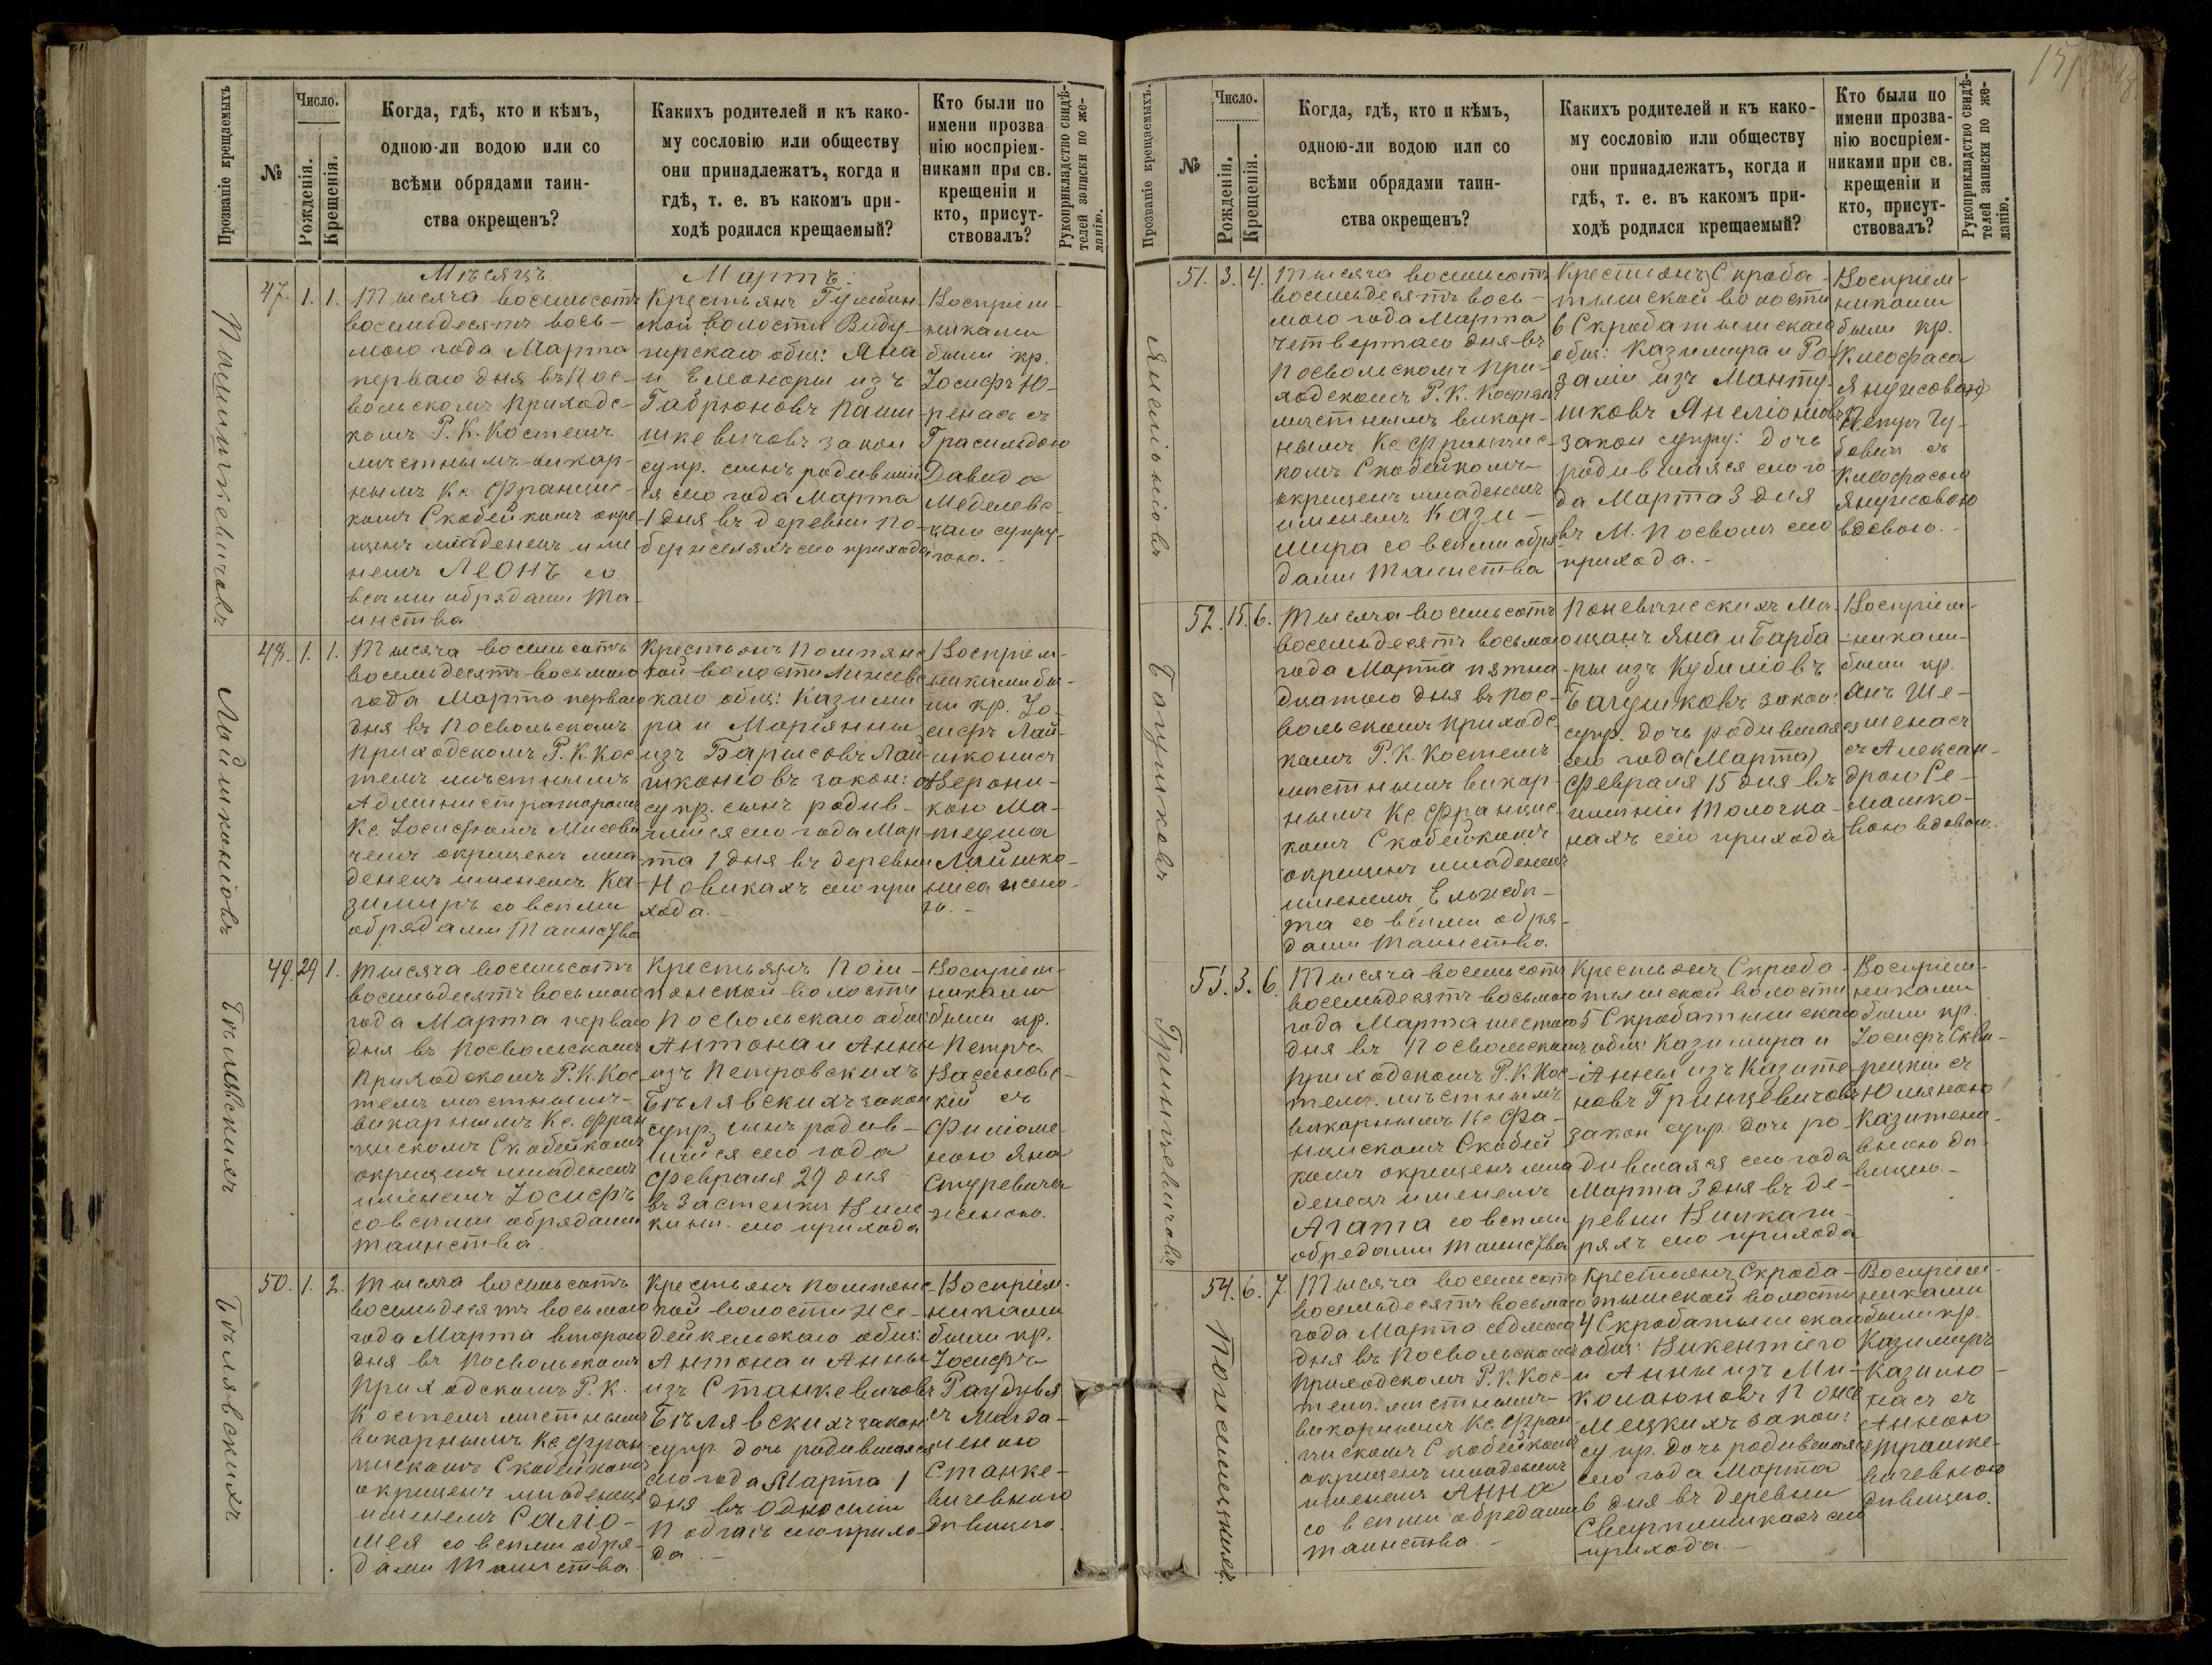 Прозваніе крещаемыхъ
№
Число.
Рожденія.
Крещенія.
Когда, гдѣ, кто и кѣмъ,
одною-ли водою или со
всѣми обрядами таин-
ства окрещенъ?
Какихъ родителей и къ како-
му сословію или обществу
они принадлежатъ, когда и
гдѣ, т. е. въ какомъ при-
ходѣ родился крещаемый?
Кто были по
имени прозва
нію воспріем-
никами при св.
крещеніи и
кто, присут-
ствовалъ?
Рукоприкладство свидѣ-
телей записки по же-
ланію.
Мѣсяцъ
Мартъ
47. 1. 1.
Тысяча восемьсотъ
восемьдесятъ вось-
мого года Марта
перваго дня въ Пос-
вольскомъ Приходс-
комъ Р. К. Костелѣ
мѣстнымъ викар-
нымъ Кс. Францис-
комъ Скобейкомъ окре-
щенъ младенецъ име
немъ Леонъ со
всѣми обрядами Та-
инства
Крестьянъ
волости
общ: Яна
и Елеоноры изъ
Габрюновъ Паши-
шкевичовъ закон
супр. сынъ родивший
ся сего года Марта
1 дня въ деревни По-
сего прихода
Воспріем-
никами
были кр.
Іосифъ Ю-
ренасъ съ
Грасильдою
Давида
супру-
гою.-
48. 1. 1.
Лойшконіовъ
Тысяча восемьсотъ
восемьдесятъ восьмого
года Марта перваго
дня въ Посвольскомъ
Приходскомъ Р. К. Кос
телѣ мѣстнымъ
Администраторомъ
Кс. Іосифомъ
чемъ окрещенъ мла
денецъ именемъ Ка-
зимиръ со всѣми
обрядами Таинства
Крестьянъ Помпянс
кой волости
каго общ: Казими
ра и Маріянны
изъ Барысовъ Лай
шконіовъ закон:
супр. сынъ родив-
шійся сего года Мар
та 1 дня въ деревни
Новикахъ сего при
хода.-
Воспріем-
никами бы-
ли кр. Іо-
сифъ Лай-
шконисъ
съ Верони-
кою Ма-
теуша
Лайшко-
ниса жено-
ю.-
49. 29 1.
Бѣлявскихъ
Тысяча восемьсотъ
восемьдесятъ восьмого
года Марта перваго
дня въ Посвольскомъ
Приходскомъ Р. К. Кос
телѣ мѣстнымъ-
викарнымъ Кс. Фран
цискомъ Скобейкомъ
окрещенъ младенецъ
именемъ Іосифъ
со всѣми обрядами
таинства.
Крестьянъ Пом-
пянской волости
Посвольскаго общ:
Антона и Анны
изъ Петровскихъ
Бѣлявскихъ закон
супр. сынъ родив-
шійся сего года
Февраля 29 дня
въ Застенки
сего прихода
Воспріем-
никами
были кр.
Петръ
кій съ
Филоме-
ною Яна
Стуревича
женою.
50. 1. 2.
Бѣлявскихъ
Тысяча восемьсотъ
восемьдесятъ восьмого
года Марта второго
дня въ Посвольскомъ
Приходскомъ Р. К.
Костелѣ мѣстнымъ
викарнымъ Кс. Фран
цискомъ Скобейкомъ
окрещенъ младенецъ
именемъ Сало-
мея со всѣми обря-
дами Таинства
Крестьянъ Помпянс
кой волости Же-
дейкельскаго общ:
Антона и Анны
изъ Станкевичовъ
Бѣлявскихъ закон
супр. дочь родившаяся
сего года Марта 1
дня въ
сего прихо-
да.-
Воспріем-
никами
были кр.
Іосифъ
съ Магда-
леною
Станке-
вичевною
дѣвицею.
Прозваніе крещаемыхъ.
№
Число.
Рожденія.
Крещенія.
Когда, гдѣ, кто и кѣмъ,
одною-ли водою или со
всѣми обрядами таин-
ства окрещенъ?
Какихъ родителей и къ како-
му сословію или обществу
они принадлежатъ, когда и
гдѣ, т. е. въ какомъ при-
ходѣ родился крещаемый?
Кто были по
имени прозва-
нію воспріем-
никами при св.
крещеніи и
кто, присут-
ствовалъ?
Рукоприкладство свидѣ-
телей записки по же-
ланію.
51. 3. 4.
Тысяча восемьсотъ
восемьдесятъ вось-
мого года Марта
четвертаго дня въ
Посвольскомъ При-
ходскомъ Р. К. Костелѣ
мѣстнымъ викар-
нымъ Кс. Францис-
комъ Скобейкомъ
окрещенъ младенецъ
именемъ Кази-
мира со всѣми обря
дами Таинства
Крестьянъ Скроба-
тышской волости
6 Скробатышскаго
общ: Казимира и Ро-
заліи изъ Манту-
шковъ
закон супру: дочь
родившаяся сего го
да Марта 3 дня
въ М. Посволѣ сего
прихода.-
Воспріем-
никами
были кр.
Петръ Гу-
бевичъ съ
Клеофасою
вдовою.-
52. 15. 6.
Тысяча восемьсотъ
восемьдесятъ восьмого
года Марта
дня въ Пос-
вольскомъ Приходс-
комъ Р. К. Костелѣ
мѣстнымъ викар-
нымъ Кс. Францис-
комъ Скобейкомъ
окрещенъ младенецъ
именемъ Ельжбѣ-
та со всѣми обря-
дами Таинства.
Поневѣжскихъ Мѣ-
щанъ Яна и Барба-
ры изъ Кубиліовъ
закон:
супр. дочь родившаяся
сего года (Марта)
Февраля 15 дня въ
имѣніи Толочка-
нахъ сего прихода
Воспріем-
никами
были кр.
Янъ
съ Алексан-
дрою Ре-
машко-
вою вдовою.
53. 3. 6.
Гринцевичовъ
Тысяча восемьсотъ
восемьдесятъ восьмого
года Марта шестого
дня въ Посвольскомъ
Приходскомъ Р. К. Кос-
телѣ мѣстнымъ
викарнымъ Кс. Фра-
нцискомъ Скобей
комъ окрещенъ мла
денецъ именемъ
Агата со всѣми
обредами Таинства
Крестьянъ Скроба-
тышской волости
5 Скробатышскаго
общ: Казимира и
Анны изъ Казите-
новъ Гринцевичовъ
закон супр. дочь ро-
дившаяся сего года
Марта 3 дня въ де-
ревни
сего прихода
Воспріем-
никами
были кр.
Іосифъ Скви-
рецкій съ
Юліяною
Казитена-
вною дѣ-
вицею.-
54. 6. 7.
Тысяча восемьсотъ
восемьдесятъ восьмого
года Марта седмого
дня въ Посвольскомъ
Приходскомъ Р. К. Кос-
телѣ мѣстнымъ-
викарнымъ Кс. Фран
цискомъ Скобейкомъ
окрещенъ младенецъ
именемъ Анна
со всѣми обредами
таинства.-
Крестьянъ Скроба-
тышской волости
4 Скробатышскаго
общ: Викентіего
и Анны изъ Ми-
закон:
супр. дочь родившаяся
сего года Марта
6 дня въ деревни
сего
прихода.-
Воспріем-
никами
были кр.
Казимиръ
Казилю-
насъ съ
Анною
Петрашке-
вичевною
дѣвицею.